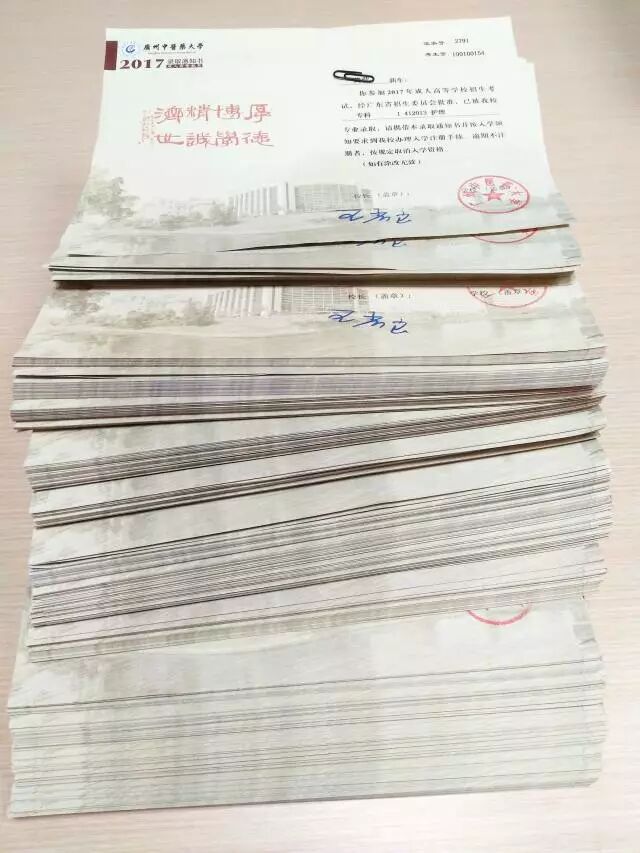 廣州中醫藥大學
2017 录取通知书
2791
考生号 100100154
厚德博學
精誠濟世
新生:
你参加2017年成人高等学校招生考
试,经广东省招生委员会批准,已被我校
专科 1 412013 护理
专业录取,请携带本录取通知书并按入学须
知要求到我校办理入学注册手续,逾期不注
册者,按规定取消入学资格。
(如有涂改无效)
校长(盖章):
校长(盖章):